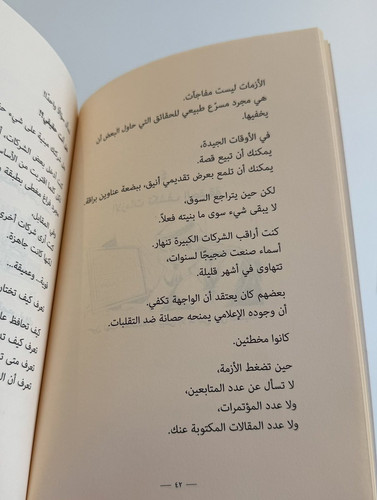 الأزمات ليست مفاجآت.
هي مجرد مسرّع طبيعي للحقائق التي حاول البعض أن
يخفيها.
في الأوقات الجيدة،
يمكنك أن تبيع قصة.
يمكنك أن تلمع بعرض تقديمي أنيق، ببضعة عناوين براقة.
لكن حين يتراجع السوق،
لا يبقى شيء سوى ما بنيته فعلاً.
كنت أراقب الشركات الكبيرة تنهار.
أسماء صنعت ضجيجًا لسنوات،
تتهاوى في أشهر قليلة.
بعضهم كان يعتقد أن الواجهة تكفي.
أن وجوده الإعلامي يمنحه حصانة ضد التقلبات.
كانوا مخطئين.
حين تضغط الأزمة،
لا تسأل عن عدد المتابعين،
ولا عدد المؤتمرات،
ولا عدد المقالات المكتوبة عنك.
— ٤٢ —
بعض الشركات،
وفي المقابل،
شركات أخرى
كانت جاهزة.
قوية.. وعميقة..
تعرف كيف تختار
كيف تحافظ
تعرف كيف
تعرف متى
تعرف أن